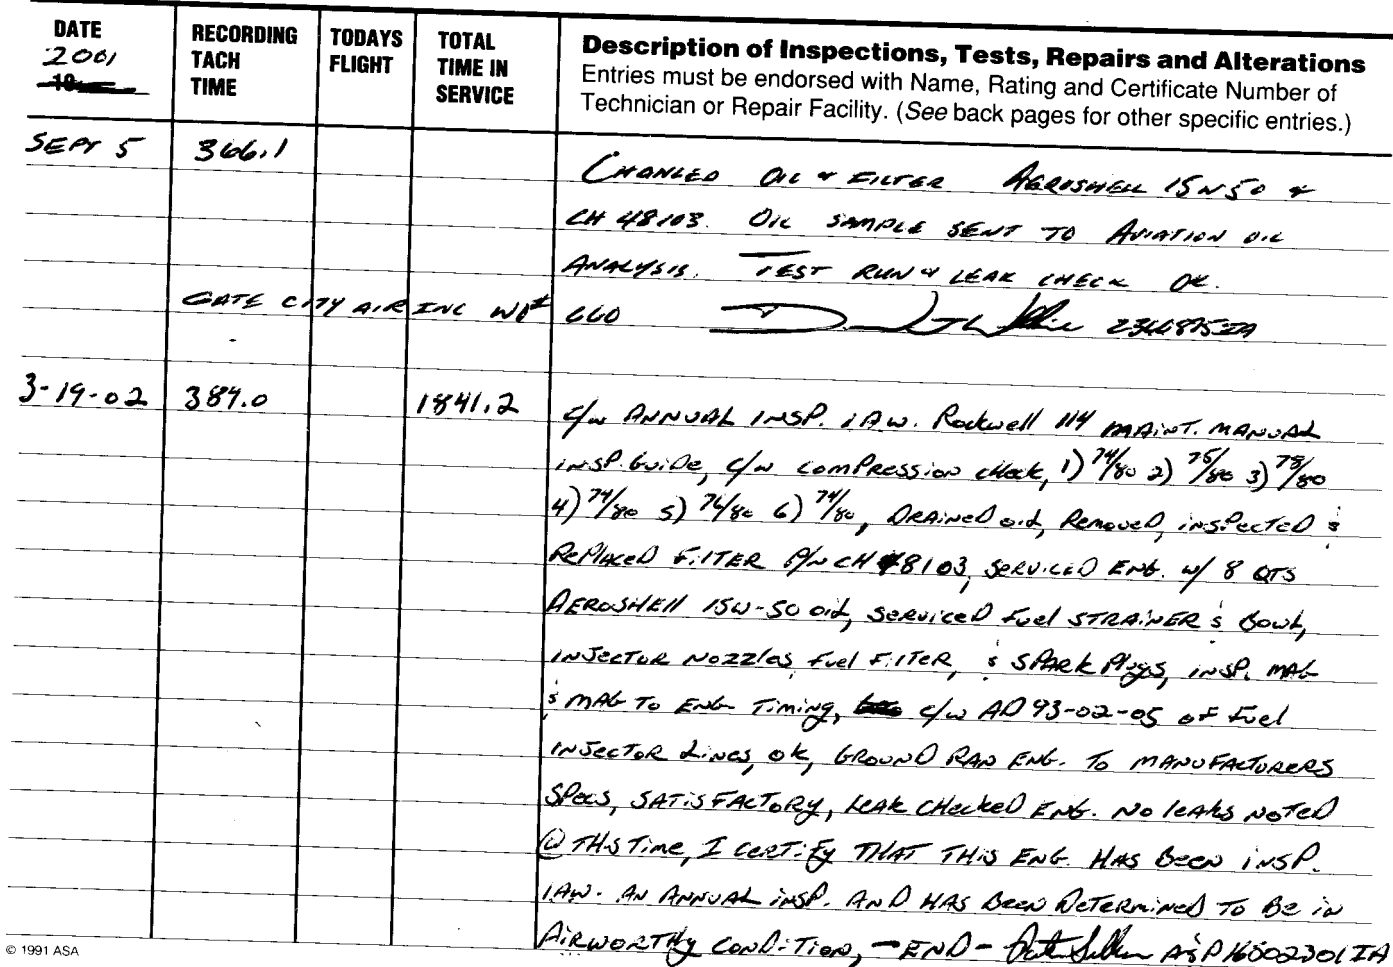 DATE
2001
19
RECORDING
TACH
TIME
TODAYS
FLIGHT
TOTAL
TIME IN
SERVICE
Description of Inspections, Tests, Repairs and Alterations
Entries must be endorsed with Name, Rating and Certificate Number of
Technician or Repair Facility. (See back pages for other specific entries.)
SEPT 5 366.1
CHANGED OIL & FILTER AEROSHELL 15W50 &
CH 48103. OIL SAMPLE SENT TO AVIATION OIL
ANALYSIS. TEST RUN & LEAK CHECK OK.
GATE CITY AIR INC WO# 660 2366875IA
3-19-02 389.0 1841.2
C/W ANNUAL INSP. IAW. Rockwell 114 MAINT. MANUAL
INSP. GUIDE, C/W COMPRESSION CHECK, 1) 74/80 2) 75/80 3) 78/80
4) 74/80 5) 76/80 6) 74/80, DRAINED OIL, REMOVED, INSPECTED &
REPLACED FILTER P/N CH 48103, SERVICED ENG. W/ 8 QTS
AEROSHELL 15W-50 OIL, SERVICED FUEL STRAINER & BOWL,
INJECTOR NOZZLES, FUEL FILTER, & SPARK PLUGS, INSP. MAG
& MAG TO ENG TIMING, C/W AD 93-02-05 OF FUEL
INJECTOR LINES, OK, GROUND RAN ENG. TO MANUFACTURERS
SPECS, SATISFACTORY, LEAK CHECKED ENG. NO LEAKS NOTED
@ THIS TIME, I CERTIFY THAT THIS ENG. HAS BEEN INSP.
IAW. AN ANNUAL INSP. AND HAS BEEN DETERMINED TO BE IN
AIRWORTHY CONDITION, —END— A&P 16502301 IA
© 1991 ASA